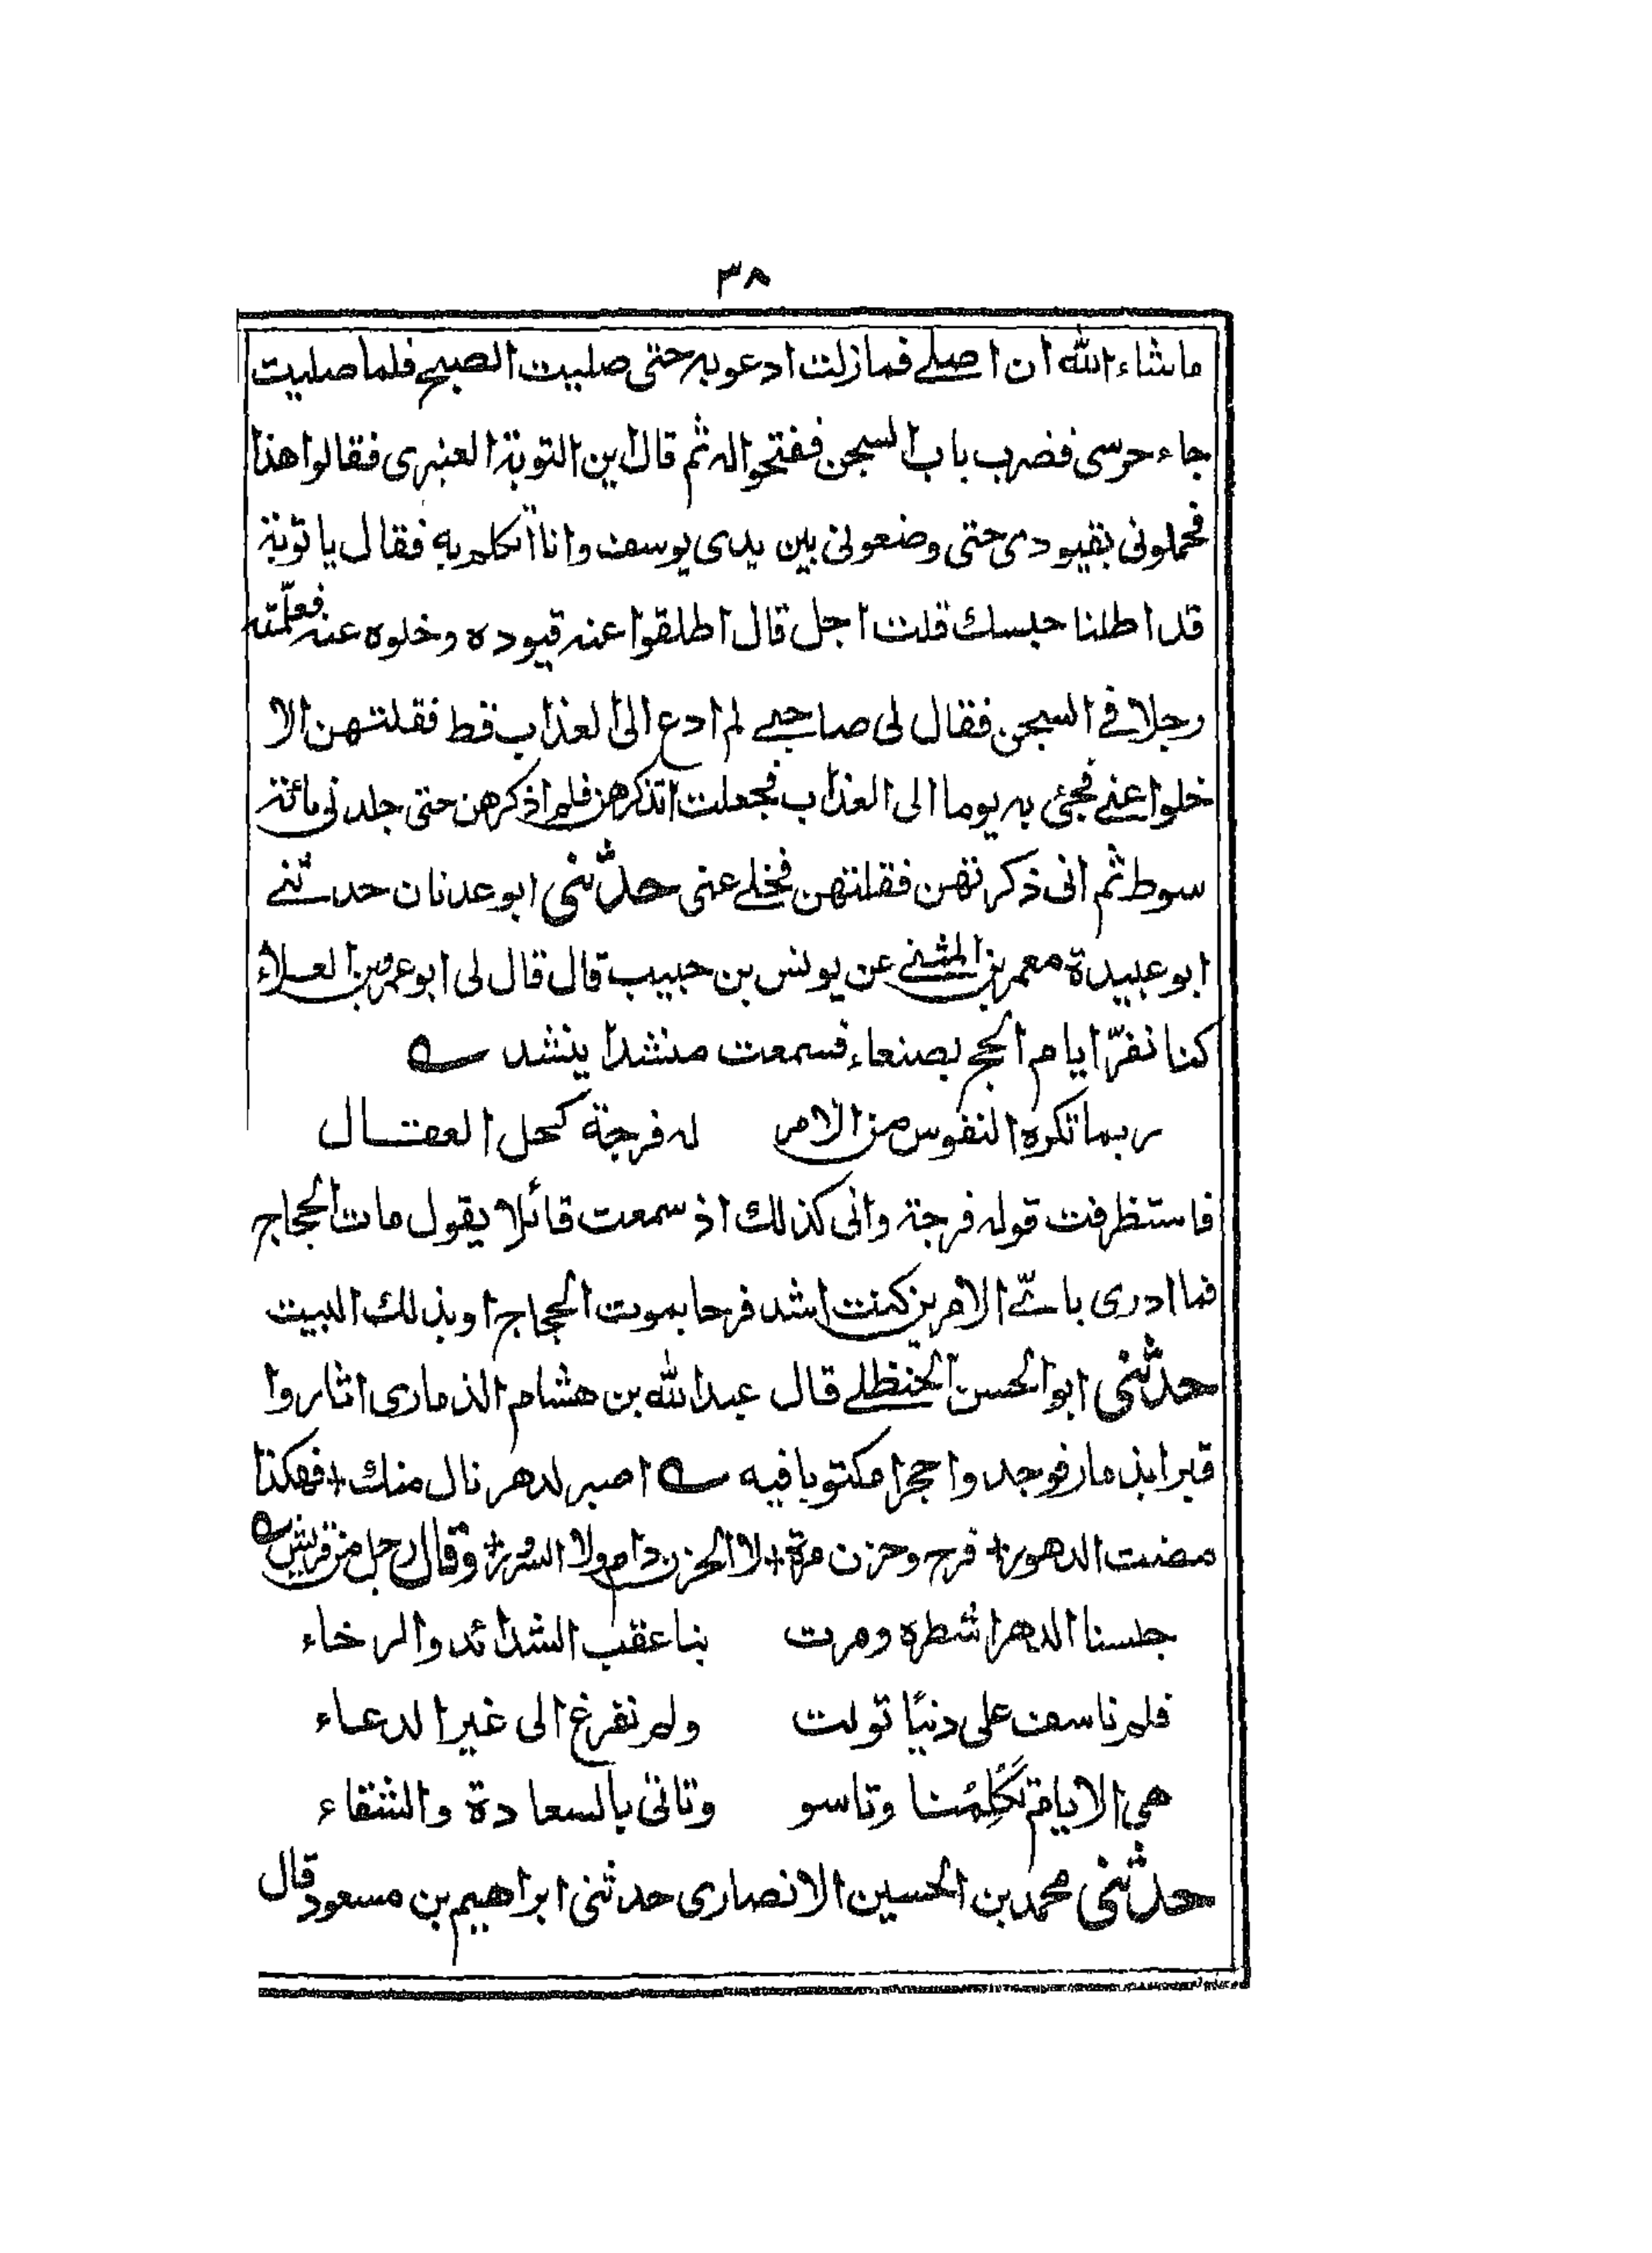 ٣٨
ماشاء الله ان اصلے فمازلت ادعو به حتى صليت الصبح فلما صليت
جاء حرسى فضرب باب السجن ففتحوا له ثم قال اين التوبة العنبرى فقالوا هذا
فحملونى بقيودى حتى وضعونى بين يدى يوسف وانا اتكلم به فقال يا توبة
قد اطلنا حبسك قلت اجل قال اطلقوا عنه قيوده وخلوه عنه فعلّمته
رجلا فے السجن فقال لى صاحبے لم ادع الى العذاب قط فقلتهن الا
خلوا عنے فجئ به يوما الى العذاب فجعلت اتذكرهن فلم اذكرهن حتى جلدنى مائة
سوط ثم انى ذكرتهن فقلتهن فخلے عنى حدّثنى ابو عدنان حدثنے
ابو عبيدة معمر بن المثنے عن يونس بن حبيب قال قال لى ابو عمرو بن العلاء
كنا نفرّ ايام الحج بصنعاء فسمعت منشدا ينشد ؎
ربما تكره النفوس من الامر له فرجة كحل العقال
فاستظرفت قوله فرجة وانى كذلك اذ سمعت قائلا يقول مات الحجاج
فما ادرى باىّ الامرين كنت اشد فرحا بموت الحجاج او بذلك البيت
حدثنى ابو الحسن الحنظلے قال عبد الله بن هشام الذمارى اثاروا
قبرا بذمار فوجدوا حجرا مكتوبا فيه ؎ اصبر لدهر نال منك + فهكذا
مضت الدهور + فرح وحزن مرة + لا الحزن دام ولا السرور + وقال رجل من قريش ؎
حلبنا الدهر اشطره ومرت بنا عقب الشدائد والرخاء
فلم ناسف على دنيًا تولت ولم نفرغ الى غير الدعاء
هى الايام تكلِمُنا وتاسو وتاتى بالسعادة والشقاء
حدثنى محمد بن الحسين الانصارى حدثنى ابراهيم بن مسعود قال